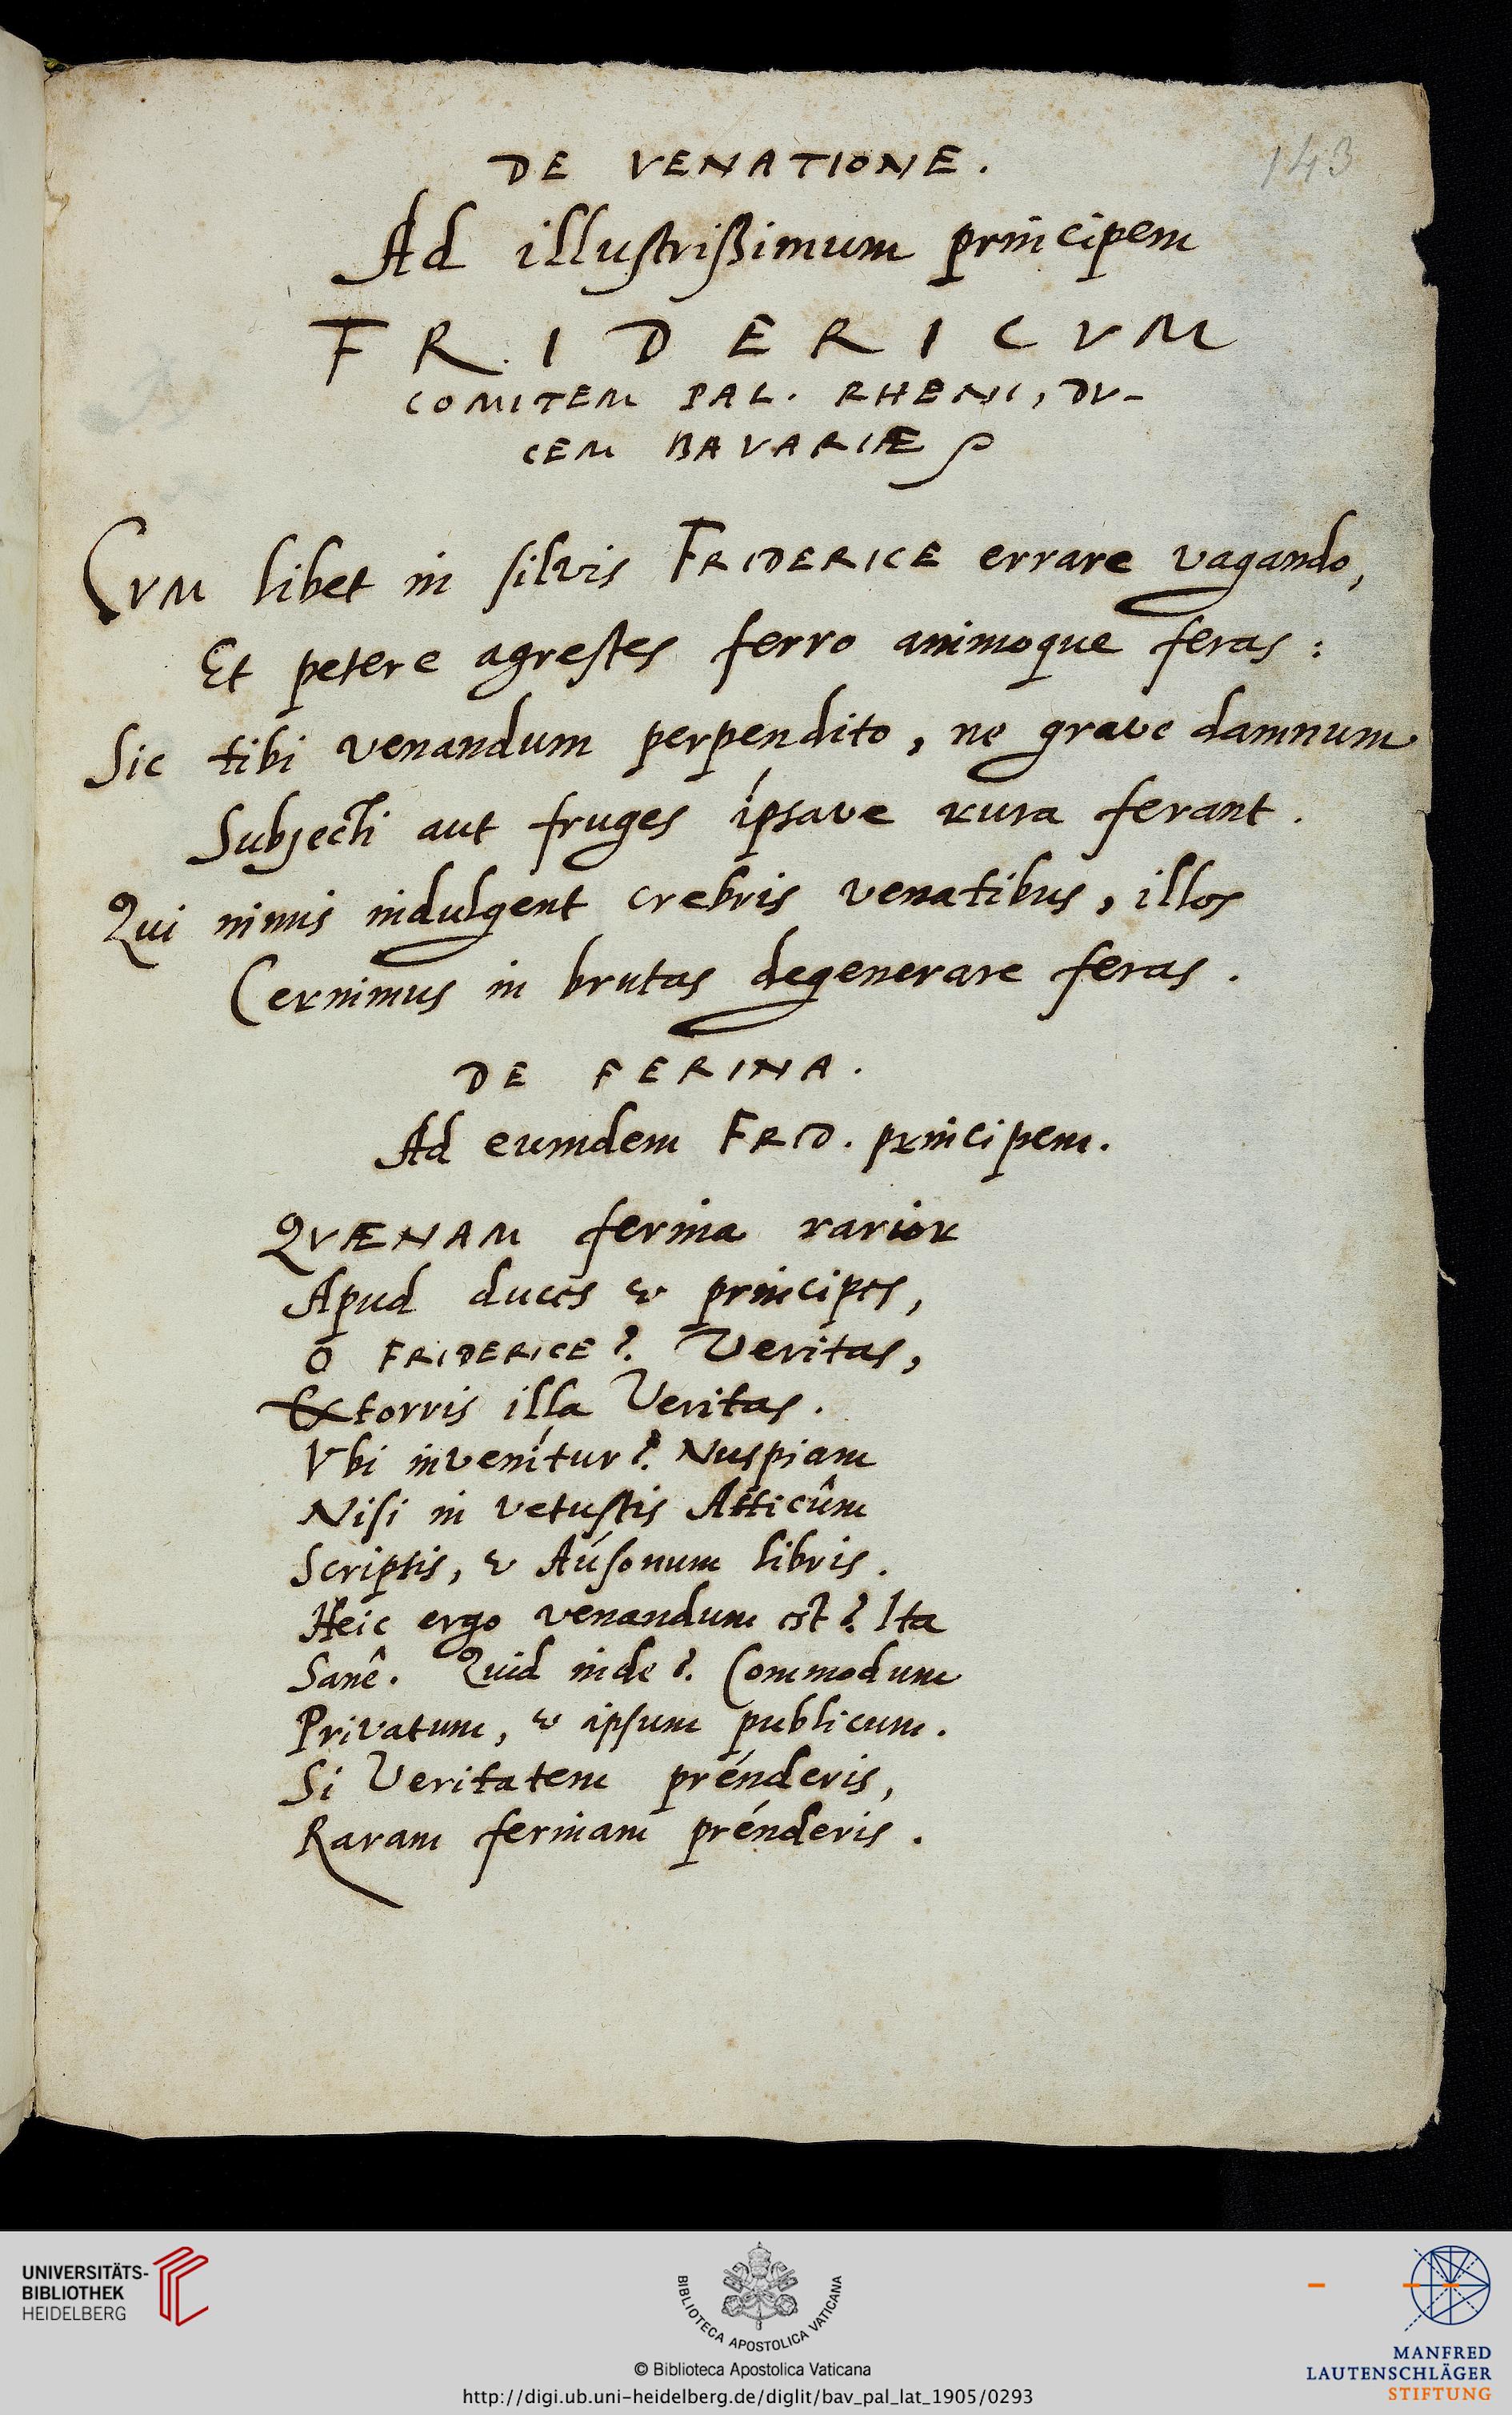 143
DE VENATIONE.
Ad illustrißimum principem
FRIDERICVM
COMITEM PAL. RHENI, DV-
CEM BAVARIÆ
CVM libet in silvis FRIDERICE errare vagando,
Et petere agrestes ferro animoque feras:
Sic tibi venandum perpendito, ne grave damnum
Subjecti aut fruges ípsave rura ferant.
Qui nimis indulgent crebris venatibus, illos
Cernimus in brutas degenerare feras.
DE FERINA.
Ad eumdem FRID. principem.
QVÆNAM ferina rarior
Apud duces & principes,
Ó FRIDERICE? Veritas,
Extorris illa Veritas.
Vbi invenítur? Nuspiam
Nisi in vetustis Atticûm
Scriptis, & Aúsonum libris.
Heic ergo venandum est? Ita
Sanê. Quid inde? Commodum
Privatum, & ipsum publicum.
Si Veritatem prénderis,
Raram ferinam prénderis.
UNIVERSITÄTS-
BIBLIOTHEK
HEIDELBERG
BIBLIOTECA APOSTOLICA VATICANA
© Biblioteca Apostolica Vaticana
http://digi.ub.uni-heidelberg.de/diglit/bav_pal_lat_1905/0293
MANFRED
LAUTENSCHLÄGER
STIFTUNG